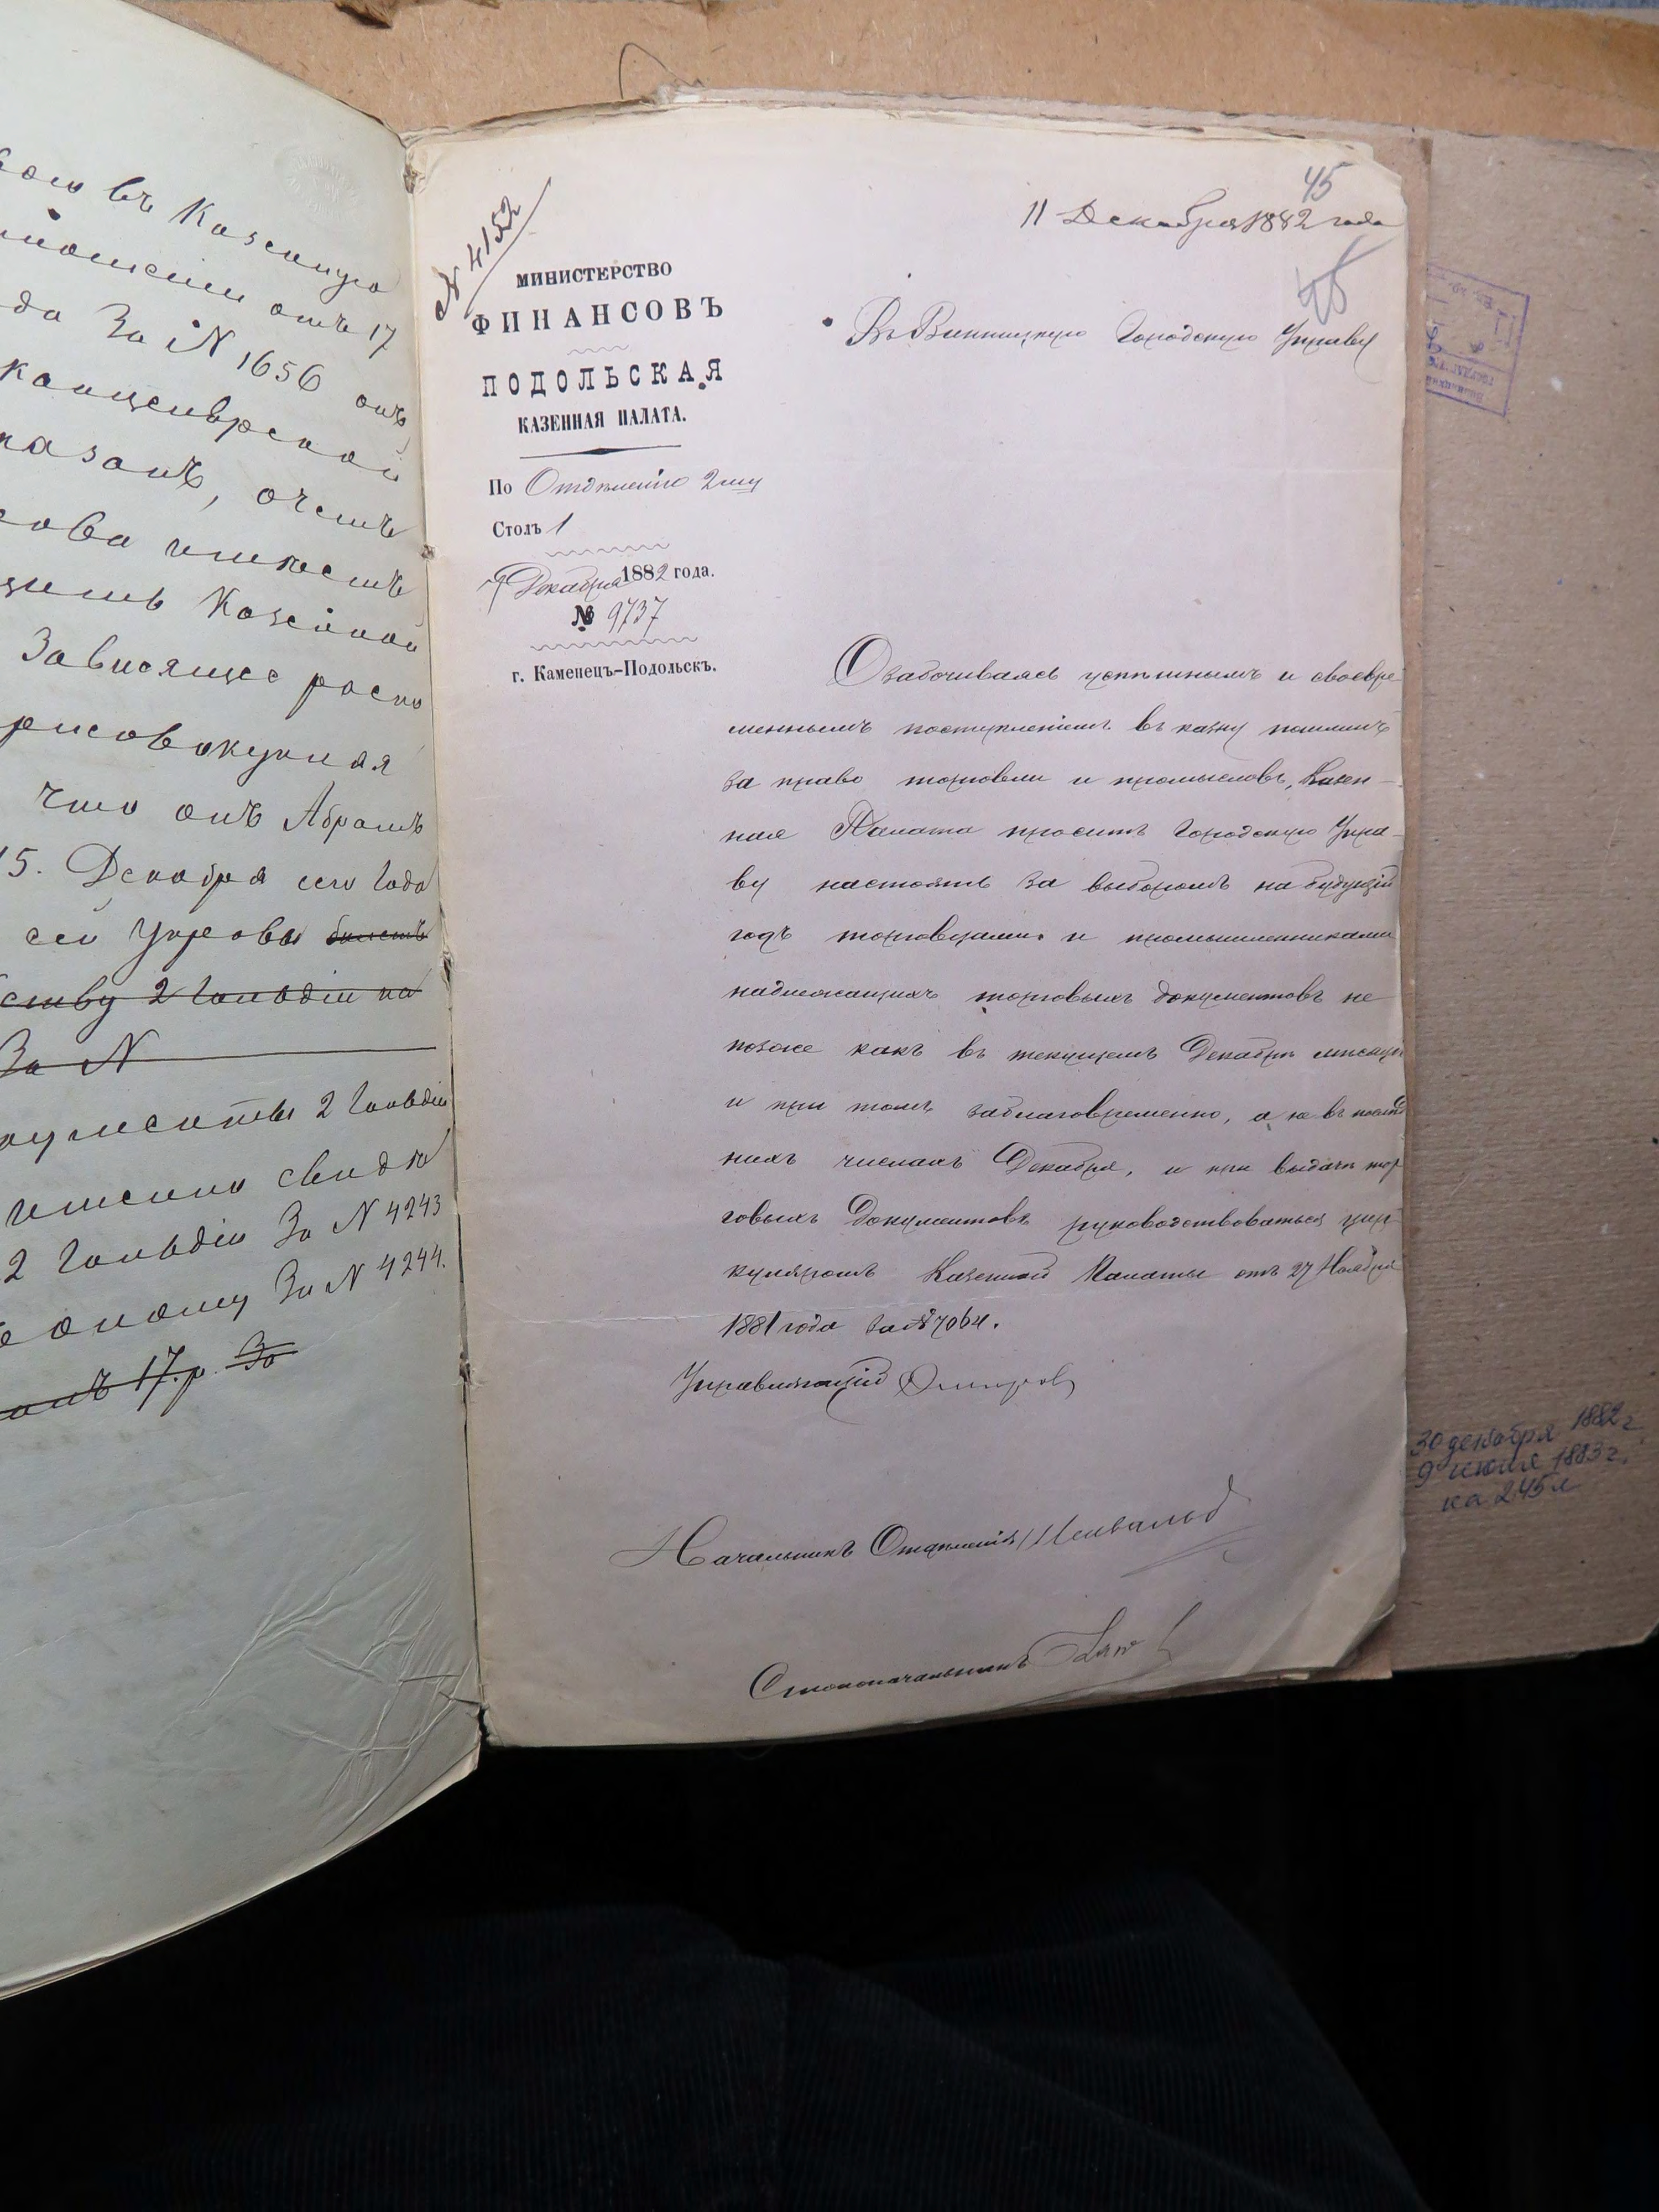 въ Казенную
отъ 17
да За № 1656 отъ
канцелярской
казанъ, очетъ
имѣетъ
Казенной
Зависящее распо
рисовокупляя
что онъ Абрамъ
15. Декабря сего Года
сей Управы билетъ
ству 2 Гильдіи на
За №
2 Гильдіи
именно свидѣ
2 Гильдіи За № 4243
За № 4244.
17 р. За
№ 4152
45
11 Декабря 1882 года
МИНИСТЕРСТВО
ФИНАНСОВЪ
ПОДОЛЬСКАЯ
КАЗЕННАЯ ПАЛАТА.
По Отдѣленію 2му
Столъ 1
7 Декабря 1882 года.
№ 9737
г. Каменецъ-Подольскъ.
Въ Винницкую Городскую Управу
Озабочиваясь успѣшнымъ и своевре
меннымъ поступленіемъ въ казну пошлинъ
за право торговли и промысловъ, Казен-
ная Палата проситъ Городскую Упра-
ву настоять за выборомъ на будущій
годъ торговцами и промышленниками
надлежащихъ торговыхъ документовъ не
позже какъ въ текущемъ Декабрѣ мѣсяцѣ
и при томъ заблаговременно, а не въ послѣд
нихъ числахъ Декабря, и при выдачѣ тор
говыхъ документовъ руководствоваться цир
куляромъ Казенной Палаты отъ 27 Ноября
1881 года за № 7064.
Управляющій
Начальникъ Отдѣленія
Столоначальникъ
30 декабря 1882 г.
9 июля 1883 г.
на 245 л